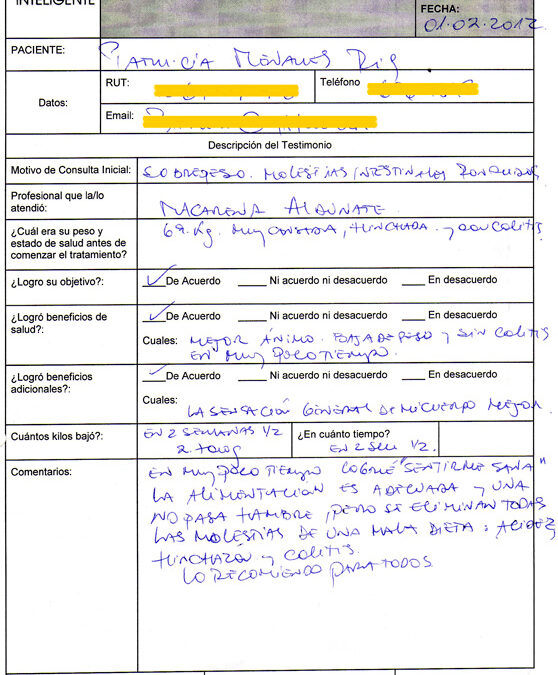 INTELIGENTE
FECHA:
01.02.2012
PACIENTE: PATRICIA MENARES
Datos:
RUT:
Teléfono
Email:
Descripción del Testimonio
Motivo de Consulta Inicial: SOBREPESO. MOLESTIAS INTESTINALES
Profesional que la/lo atendió: MACARENA ALDUNATE.
¿Cuál era su peso y estado de salud antes de comenzar el tratamiento? 69. Kg. MUY CANSADA, HINCHADA. y CON COLITIS
¿Logro su objetivo?: ✓ De Acuerdo Ni acuerdo ni desacuerdo En desacuerdo
¿Logró beneficios de salud?: ✓ De Acuerdo Ni acuerdo ni desacuerdo En desacuerdo
Cuales: MEJOR ÁNIMO. BAJA DE PESO y SIN COLITIS
EN MUY POCO TIEMPO.
¿Logró beneficios adicionales?: ✓ De Acuerdo Ni acuerdo ni desacuerdo En desacuerdo
Cuales:
LA SENSACIÓN GENERAL DE MI CUERPO MEJOR.
Cuántos kilos bajó? EN 2 SEMANAS 1/2
2.700g
¿En cuánto tiempo? EN 2 SEM 1/2.
Comentarios: EN MUY POCO TIEMPO LOGRÉ "SENTIRME SANA"
LA ALIMENTACION ES ADECUADA y UNA
NO PASA HAMBRE, PERO SE ELIMINAN TODAS
LAS MOLESTIAS DE UNA MALA DIETA: ACIDEZ,
HINCHAZÓN y COLITIS.
LO RECOMIENDO PARA TODOS